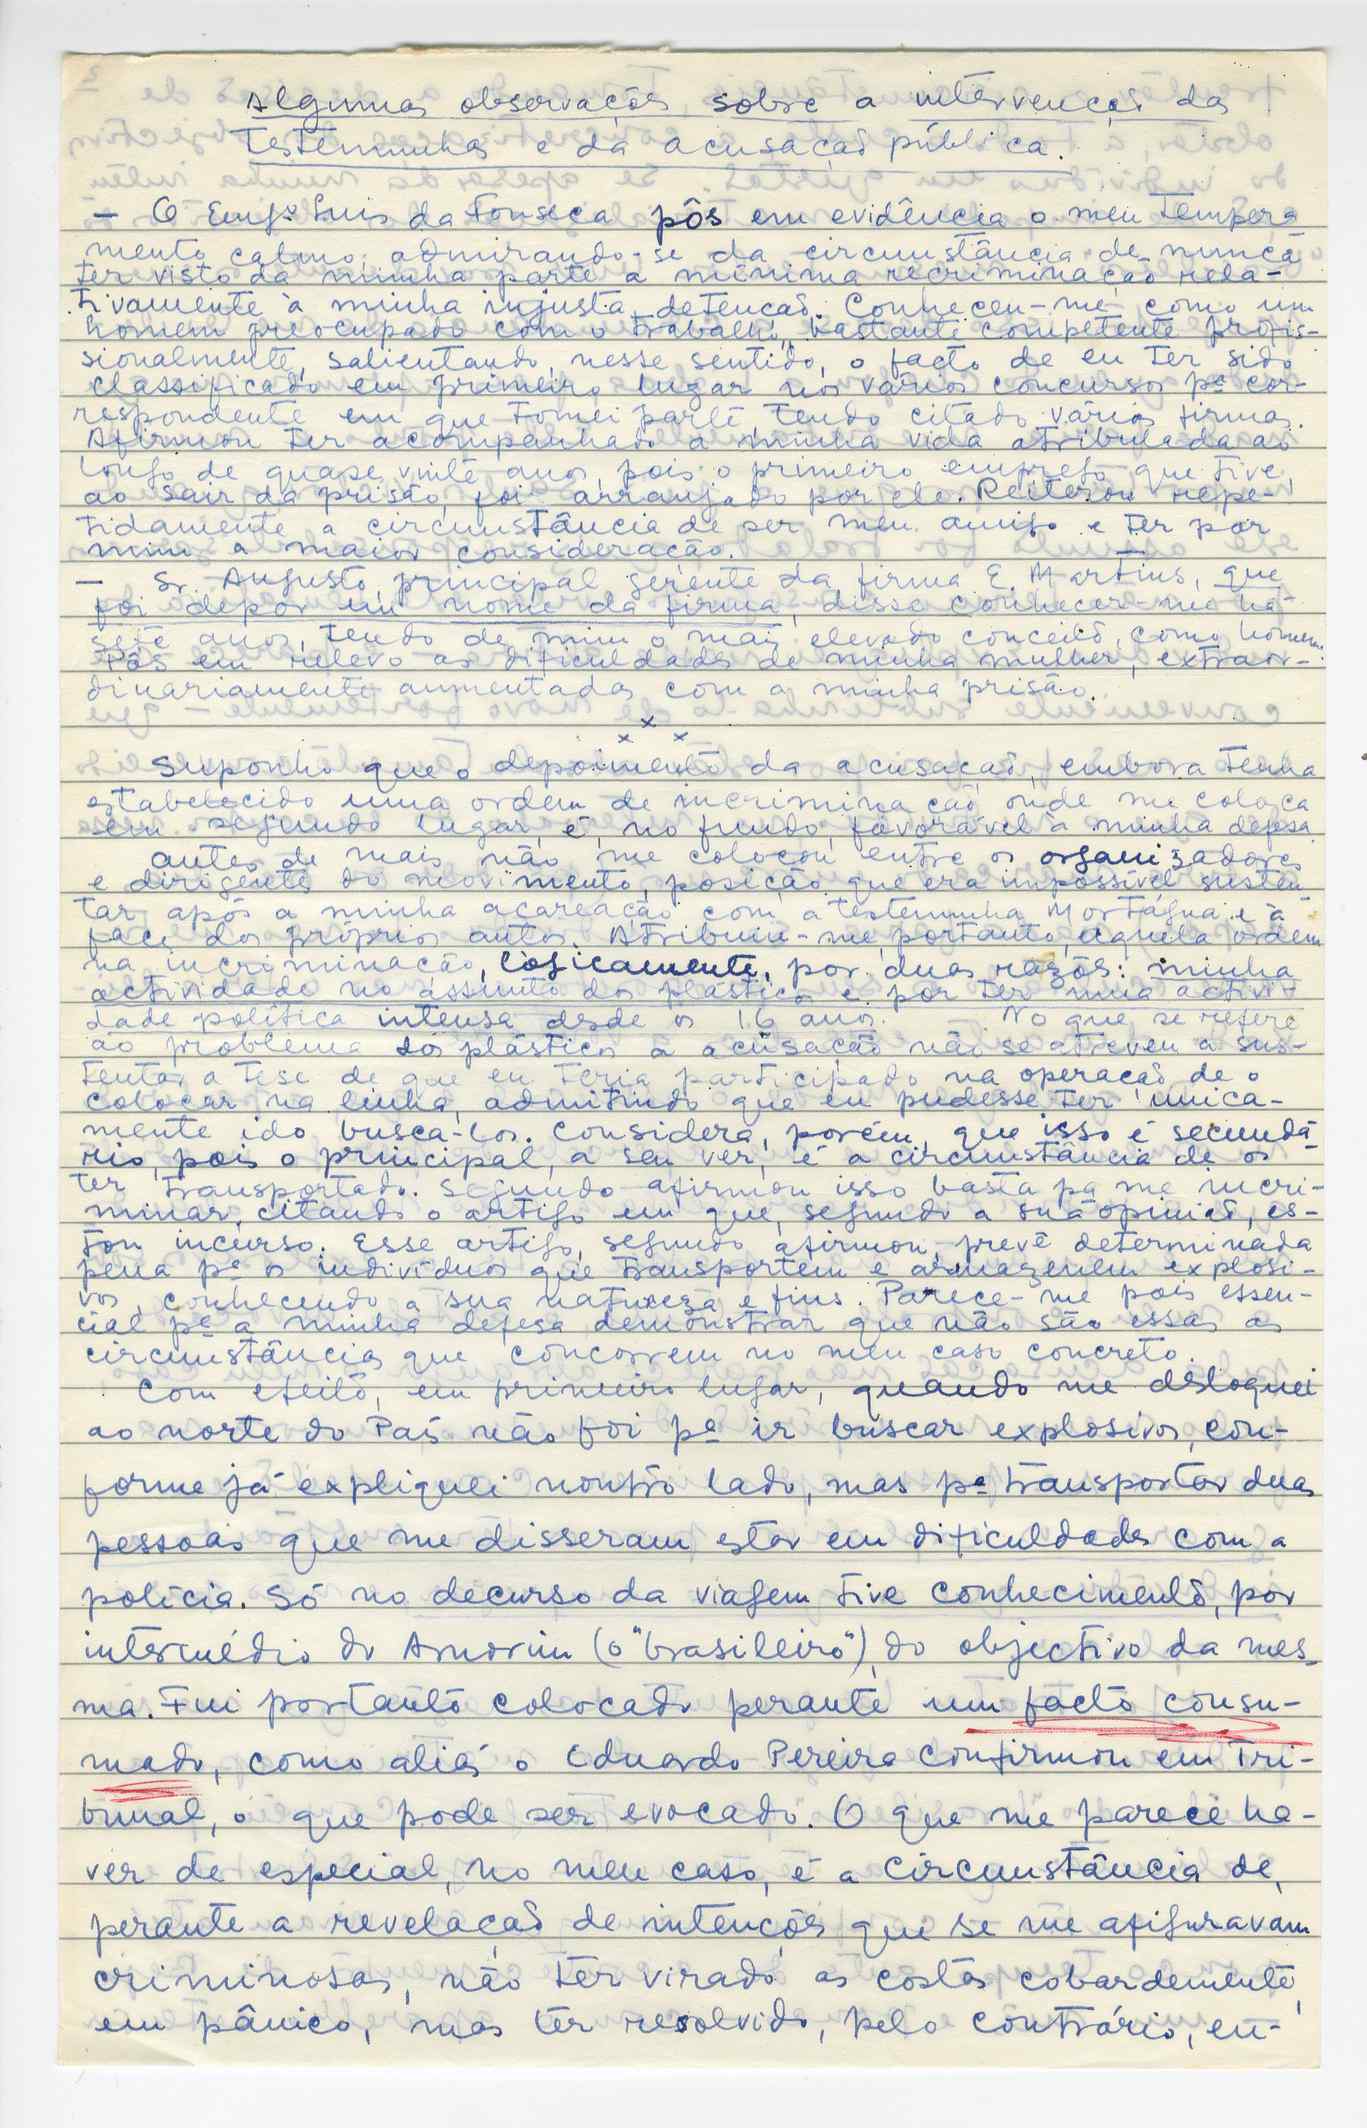 Algumas observações sobre a intervenção das
Testemunhas e da acusação pública.
— O Engº Luis da Fonseca pôs em evidência o meu tempera
mento calmo, admirando-se da circunstância de nunca
ter visto da minha parte a mínima recriminação rela-
tivamente à minha injusta detenção. Conheceu-me como um
homem preocupado com o trabalho, bastante competente profis-
sionalmente, salientando, nesse sentido, o facto de eu ter sido
classificado em primeiro lugar nos vários concursos pª cor-
respondente em que tomei parte tendo citado várias firmas.
Afirmou ter acompanhado a minha vida atribulada ao
longo de quase vinte anos, pois o primeiro emprego que tive,
ao sair da prisão, foi arranjado por ele. Reiterou repe-
tidamente a circunstância de ser meu amigo e ter por
mim a maior consideração.
— Sr. Augusto, principal gerente da firma E. Martins, que
foi depor em nome da firma, disse conhecer-me há
sete anos, tendo de mim o mais elevado conceito, como homem.
Pôs em relevo as dificuldades de minha mulher, extraor-
dinariamente aumentadas com a minha prisão.
x x x
Suponho que o depoimento da acusação, embora tenha
estabelecido uma ordem de incriminação onde me coloca
em segundo lugar, é, no fundo, favorável à minha defesa
Antes de mais não me colocou entre os organizadores
e dirigentes do movimento, posição que era impossível susten
tar após a minha acareação com a testemunha Mortágua e à
face dos próprios autos. Atribuiu-me, portanto, aquela ordem
na incriminação, lògicamente, por duas razões: minha
actividade no assunto dos plásticos e por ter uma activi-
dade política intensa desde os 16 anos. — No que se refere
ao problema dos plásticos a acusação não se atreveu a sus-
tentar a tese de que eu teria participado na operação de o
colocar na linha, admitindo que eu pudesse ter ùnica-
mente ido buscá-los. Considera, porém, que isso é secundá-
rio, pois o principal, a seu ver, é a circunstância de os
ter transportado. Segundo afirmou isso basta pª me incri-
minar, citando o artigo em que, segundo a sua opinião, es-
tou incurso. Esse artigo, segundo afirmou, prevê determinada
pena pª os indivíduos que transportem e armazenem explosi-
vos, conhecendo a sua natureza e fins. Parece-me pois essen-
cial pª a minha defesa demonstrar que não são essas as
circunstâncias que concorrem no meu caso concreto.
Com efeito, em primeiro lugar, quando me desloquei
ao norte do País não foi pª ir buscar explosivos, con-
forme já expliquei noutro lado, mas pª transportar duas
pessoas que me disseram estar em dificuldades com a
polícia. Só no decurso da viagem tive conhecimento, por
intermédio do Amorim (o "brasileiro"), do objectivo da mes-
ma. Fui portanto colocado perante um facto consu-
mado, como aliás o Eduardo Pereira confirmou em Tri-
bunal, o que pode ser evocado. O que me parece ha-
ver de especial, no meu caso, é a circunstância de,
perante a revelação de intenções que se me afiguravam
criminosas, não ter virado as costas cobardemente,
em pânico, mas ter resolvido, pelo contrário, en-